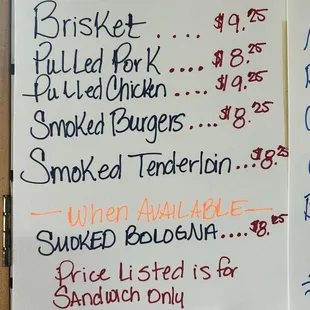 Brisket .... $9.25
Pulled Pork .... $8.25
Pulled Chicken .... $9.25
Smoked Burgers .... $8.25
Smoked Tenderloin ... $8.25
— When AVAILABLE —
SMOKED BOLOGNA .... $8.25
Price Listed is for
SANdwich ONly